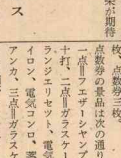 集が期待
ス
枚、点数券三枚、
点数券の景品は次の通り
一点‖フエザーシャンプ
十打、二点‖ガラスケー
ランジエリセット、電気
イロン、電気コンロ、蒸
アンカ、三点‖ガラスケ